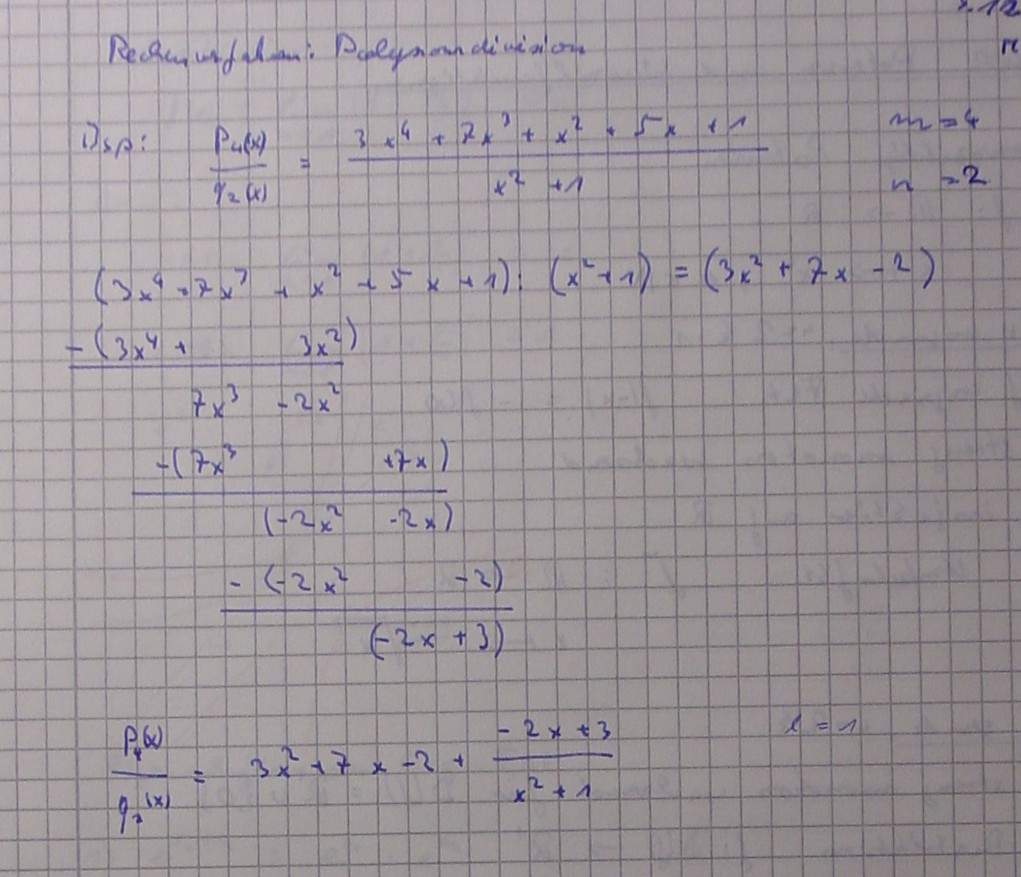 Rechenverfahren: Polynomdivision
Bsp: P₄(x)/q₂(x) = (3x⁴ + 7x³ + x² + 5x + 1)/(x² + 1) m = 4
n = 2
(3x⁴ + 7x³ + x² + 5x + 1) : (x² + 1) = (3x² + 7x - 2)
- (3x⁴ + 3x²)
7x³ - 2x²
- (7x³ + 7x)
(-2x² - 2x)
- (-2x² - 2)
(-2x + 3)
P₄(x)/q₂(x) = 3x² + 7x - 2 + (-2x + 3)/(x² + 1) l = 1